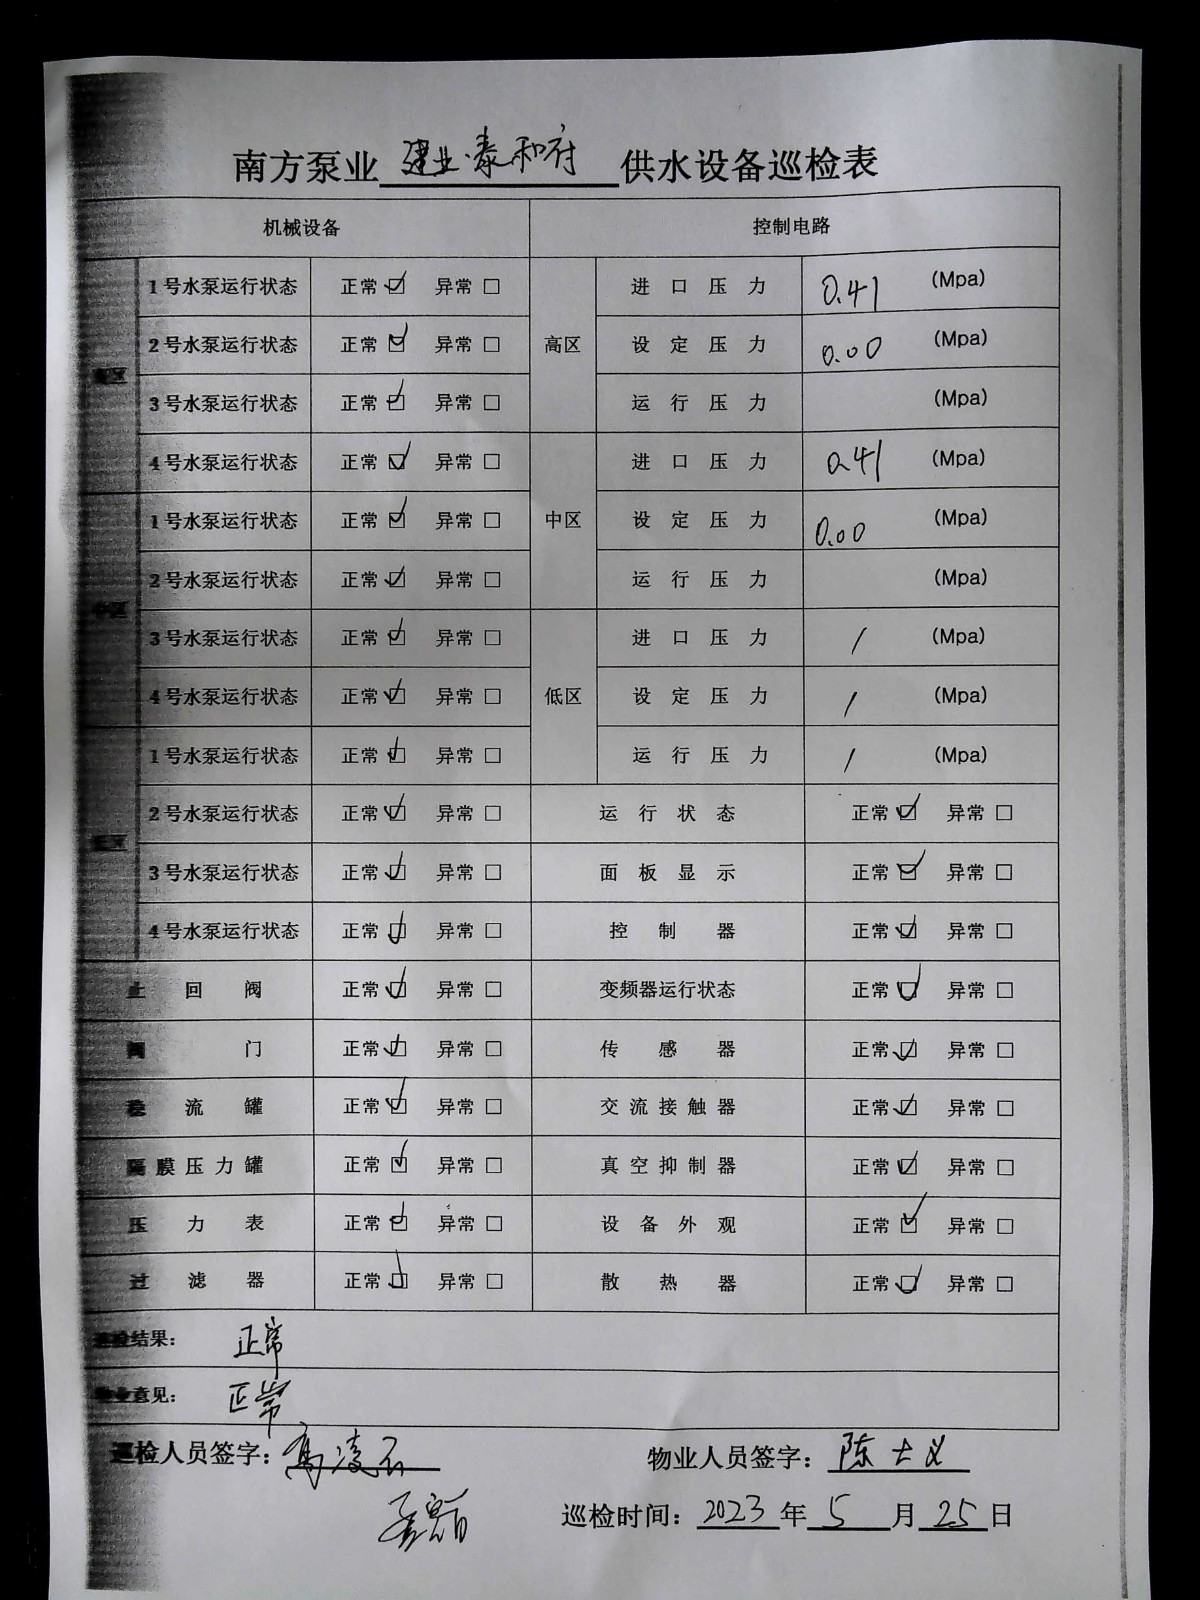 南方泵业 建业·泰和府 供水设备巡检表
机械设备 控制电路
1号水泵运行状态 正常☑ 异常□ 高区 进口压力 0.41 (Mpa)
2号水泵运行状态 正常☑ 异常□ 设定压力 0.00 (Mpa)
区 3号水泵运行状态 正常☑ 异常□ 运行压力 (Mpa)
4号水泵运行状态 正常☑ 异常□ 中区 进口压力 0.41 (Mpa)
1号水泵运行状态 正常☑ 异常□ 设定压力 0.00 (Mpa)
中区 2号水泵运行状态 正常☑ 异常□ 运行压力 (Mpa)
3号水泵运行状态 正常☑ 异常□ 低区 进口压力 / (Mpa)
4号水泵运行状态 正常☑ 异常□ 设定压力 / (Mpa)
1号水泵运行状态 正常☑ 异常□ 运行压力 / (Mpa)
2号水泵运行状态 正常☑ 异常□ 运行状态 正常☑ 异常□
区 3号水泵运行状态 正常☑ 异常□ 面板显示 正常☑ 异常□
4号水泵运行状态 正常☑ 异常□ 控制器 正常☑ 异常□
止回阀 正常☑ 异常□ 变频器运行状态 正常☑ 异常□
阀门 正常☑ 异常□ 传感器 正常☑ 异常□
稳流罐 正常☑ 异常□ 交流接触器 正常☑ 异常□
隔膜压力罐 正常☑ 异常□ 真空抑制器 正常☑ 异常□
压力表 正常☑ 异常□ 设备外观 正常☑ 异常□
过滤器 正常☑ 异常□ 散热器 正常☑ 异常□
巡检结果： 正常
物业意见： 正常
巡检人员签字：高凌云 物业人员签字：陈士义
巡检时间：2023年5月25日